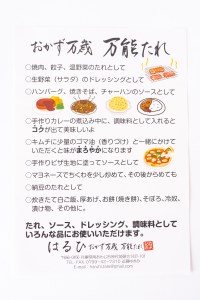 おかず万歳 万能たれ
○焼肉、餃子、温野菜のたれとして
○生野菜(サラダ)のドレッシングとして
○ハンバーグ、焼きそば、チャーハンのソースとして
○手作りカレーの煮込み中に、調味料として入れると
コクが出て美味しいよ
○キムチに少量のゴマ油(香りづけ)と一緒にかけて
いただくと味がまろやかになります
○手作りピザ生地に塗ってソースとして
○マヨネーズでちくわを少し炒めて、その後からめても
○納豆のたれとして
○炊きたて白ご飯、厚あげ、お餅(焼き餅)、そぼろ、冷奴、
漬け物、その他に。
たれ、ソース、ドレッシング、調味料として
いろんな品にお使いいただけます。
はるひ おかず万歳 万能たれ